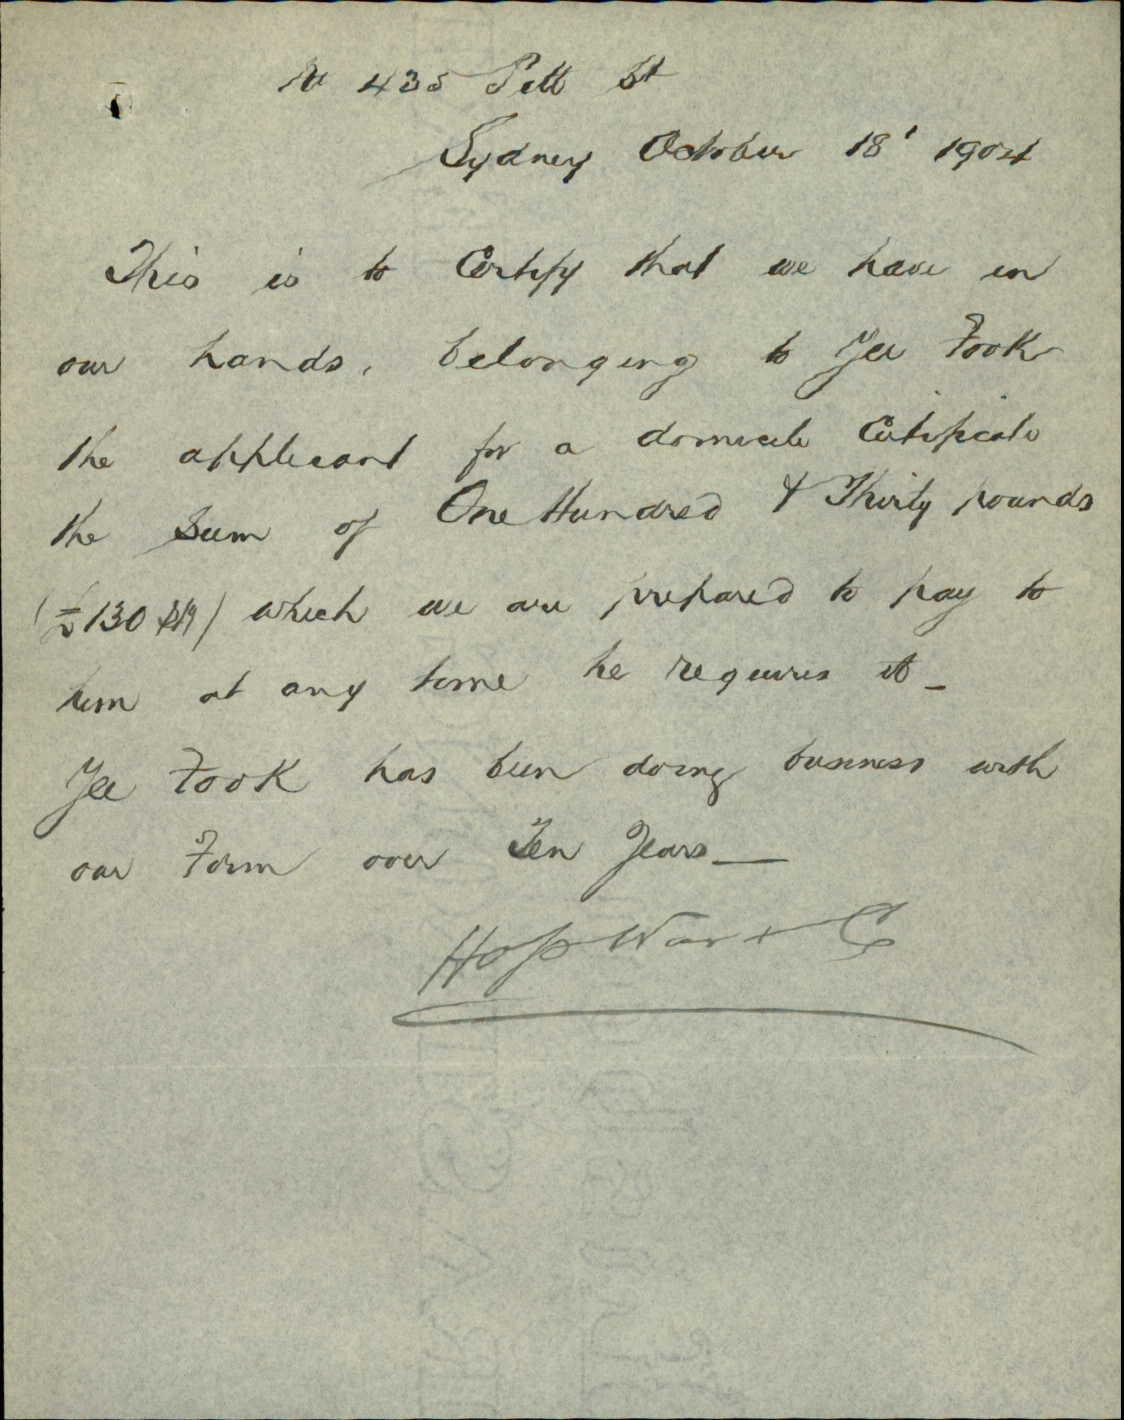 No 435 Pitt St
Sydney October 18' 1904
This is to Certify that we have in
our hands, belonging to Yee Fook
the applicant for a domicile Certificate
the Sum of One Hundred & Thirty pounds
(£130 Stg) which we are prepared to pay to
him at any time he requires it -
Yee Fook has been doing business with
our Firm over Ten Years —
Hop War & Co